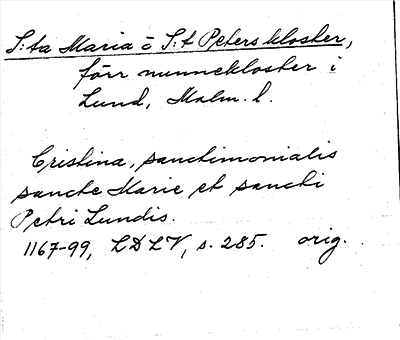 S:ta Maria o S:t Peters kloster,
förr nunnekloster i
Lund, Malm. l.
Cristina, sanctimonialis
sancte Marie et sancti
Petri Lundis.
1167-99, LDLV, s. 285. orig.